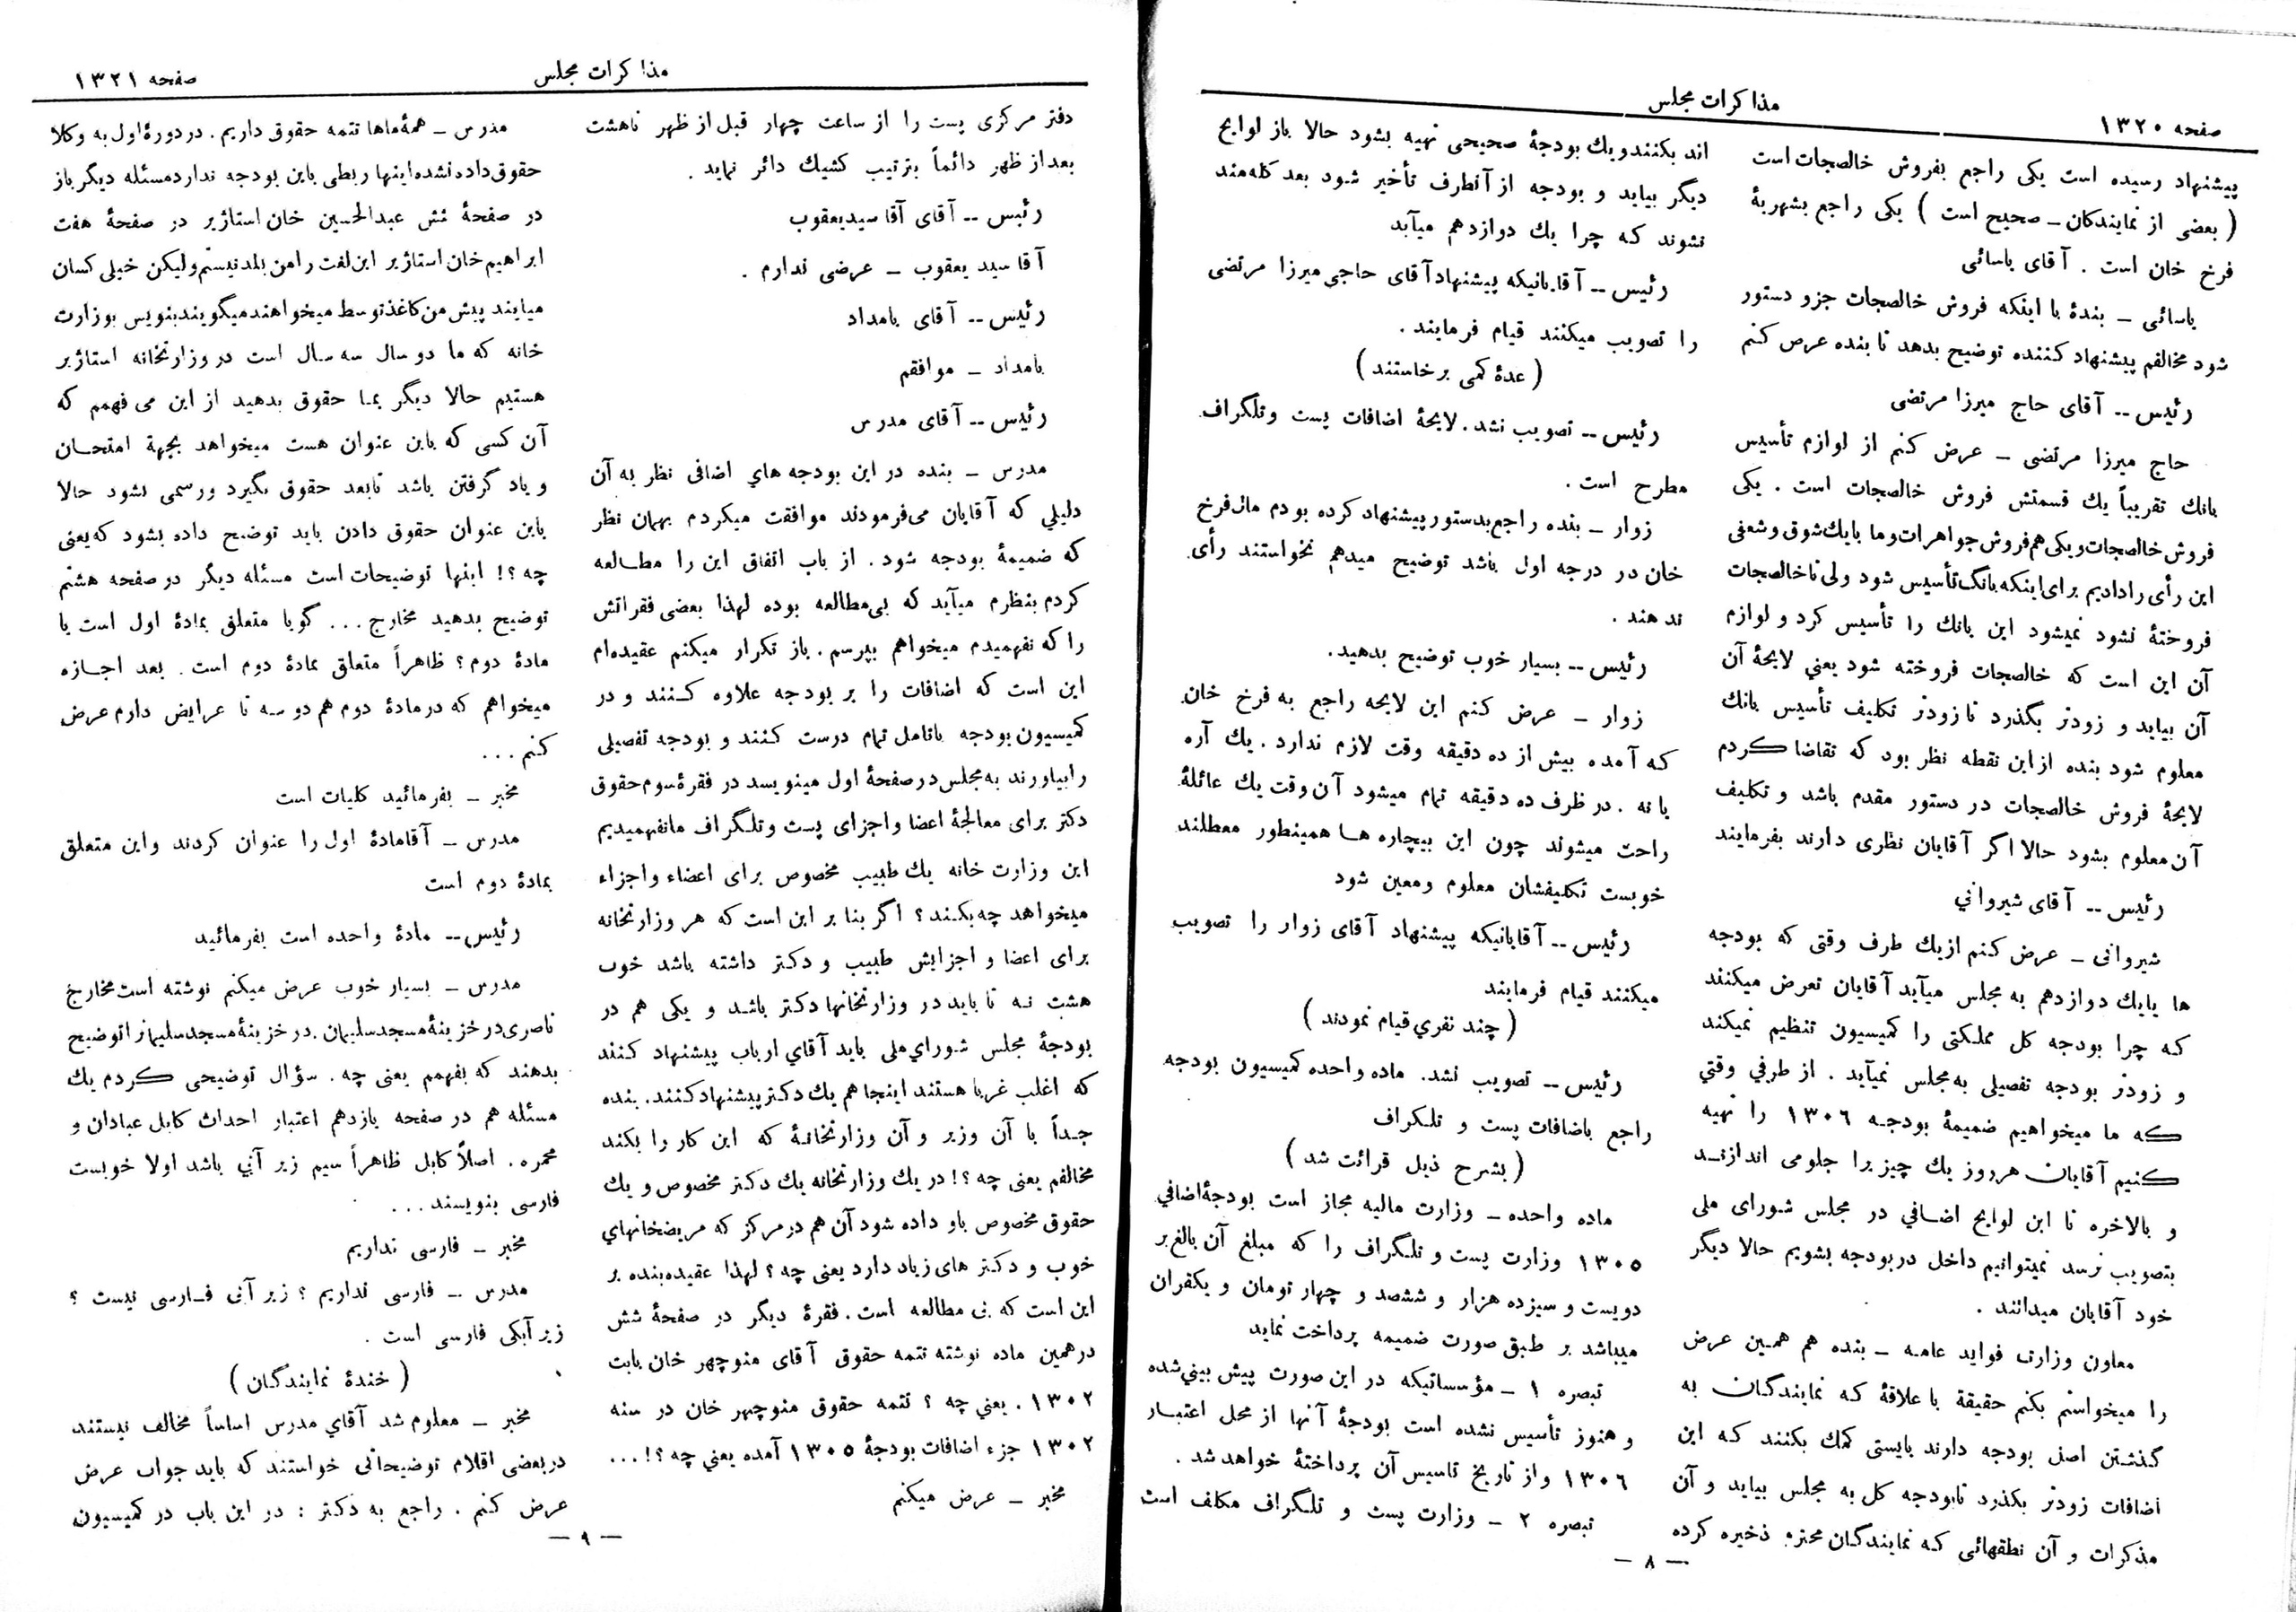 صفحه ۱۳۲۰
مذاکرات مجلس
پیشنهاد رسیده است یکی راجع بفروش خالصجات است
( بعضی از نمایندکان ـ صحیح است ) یکی راجع بشهریهٔ
فرخ خان است . آقای یاسائی
یاسائی ـ بندهٔ با اینکه فروش خالصجات جزو دستور
شود مخالفم پیشنهاد کننده توضیح بدهد تا بنده عرض کنم
رئیس -- آقای حاج میرزا مرتضی
حاج میرزا مرتضی ـ عرض کنم از لوازم تأسیس
بانك تقریباً یك قسمتش فروش خالصجات است . یکی
فروش خالصجات ویکی هم فروش جواهرات وما بایك شوق وشعفی
این رأی را دادیم برای اینکه بانک تأسیس شود ولی تا خالصجات
فروختهٔ نشود نمیشود این بانك را تأسیس کرد و لوازم
آن این است که خالصجات فروخته شود یعني لایحهٔ آن
آن بیاید و زودتر بگذرد تا زودتر تکلیف تأسیس بانك
معلوم شود بنده از این نقطه نظر بود که تقاضا کردم
لایحهٔ فروش خالصجات در دستور مقدم باشد و تکلیف
آن معلوم بشود حالا اگر آقایان نظری دارند بفرمایند
رئیس -- آقای شیرواني
شیروانی ـ عرض کنم از یك طرف وقتی که بودجه
ها یایك دوازدهم به مجلس میآید آقایان تعرض میکنند
که چرا بودجه کل مملکتی را کمیسیون تنظیم نمیکند
و زودتر بودجه تفصیلی به مجلس نمیآید . از طرفي وقتي
که ما میخواهیم ضمیمهٔ بودجه ۱۳۰۶ را تهیه
کنیم آقایان هر روز یك چیز برا جلومی اندازند
و بالاخره تا این لوایح اضافي در مجلس شورای ملی
بتصویب نرسد نمیتوانیم داخل در بودجه بشویم حالا دیگر
خود آقایان میدانند .
معاون وزارت فواید عامه ـ بنده هم همین عرض
را میخواستم بکنم حقیقة با علاقهٔ که نمایندگان به
گذشتن اصل بودجه دارند بایستی کمك بکنند که این
اضافات زودتر بکذرد تابودجه کل به مجلس بیاید و آن
مذکرات و آن نطقهائی که نمایندگان محترم ذخیره کرده
اند بکنند ویك بودجهٔ صحیحی تهیه بشود حالا باز لوایح
دیگر بیاید و بودجه از آنطرف تأخیر شود بعد کله مند
نشوند که چرا یك دوازدهم میآید
رئیس -- آقایانیکه پیشنهاد آقای حاجي میرزا مرتضی
را تصویب میکنند قیام فرمایند .
( عدهٔ کمی برخاستند )
رئیس -- تصویب نشد . لایحهٔ اضافات پست وتلگراف
مطرح است .
زوار ـ بنده راجع بدستور پیشنهاد کرده بودم مال فرخ
خان در درجه اول باشد توضیح میدهم نخواستند رأی
ندهند .
رئیس -- بسیار خوب توضیح بدهید .
زوار ـ عرض کنم این لایحه راجع به فرخ خان
که آمده بیش از ده دقیقه وقت لازم ندارد . یك آره
یا نه . در ظرف ده دقیقه تمام میشود آن وقت یك عائلهٔ
راحت میشوند چون این بیچاره ها همینطور معطلند
خوبست تکلیفشان معلوم ومعین شود
رئیس -- آقایانیکه پیشنهاد آقای زوار را تصویب
میکنند قیام فرمایند
( چند نفري قیام نمودند )
رئیس -- تصویب نشد . ماده واحده کمیسیون بودجه
راجع باضافات پست و تلگراف
( بشرح ذیل قرائت شد )
ماده واحده ـ وزارت مالیه مجاز است بودجهٔ اضافي
۱۳۰۵ وزارت پست و تلگراف را که مبلغ آن بالغ بر
دویست و سیزده هزار و ششصد و چهار تومان و یکقران
میباشد بر طبق صورت ضمیمه پرداخت نماید
تبصره ۱ ـ مؤسساتیکه در این صورت پیش بیني شده
و هنوز تأسیس نشده است بودجهٔ آنها از محل اعتبار
۱۳۰۶ و از تاریخ تاسیس آن پرداختهٔ خواهد شد .
تبصره ۲ ـ وزارت پست و تلگراف مکلف است
— ۸ —
مذاکرات مجلس
صفحه ۱۳۲۱
دفتر مرکزی پست را از ساعت چهار قبل از ظهر تاهشت
بعد از ظهر دائماً بترتیب کشیك دائر نماید .
رئیس -- آقای آقا سیدیعقوب
آقا سید یعقوب ـ عرضی ندارم .
رئیس -- آقای بامداد
بامداد ـ موافقم
رئیس -- آقای مدرس
مدرس ـ بنده در این بودجه هاي اضافی نظر به آن
دلیلي که آقایان می فرمودند موافقت میکردم بهمان نظر
که ضمیمهٔ بودجه شود . از باب اتفاق این را مطالعه
کردم بنظرم میآید که بی مطالعه بوده لهذا بعضی فقراتش
را که نفهمیدم میخواهم بپرسم . باز تکرار میکنم عقیده ام
این است که اضافات را بر بودجه علاوه کنند و در
کمیسیون بودجه باتامل تمام درست کنند و بودجه تفصیلی
را بیاورند به مجلس در صفحهٔ اول مینویسد در فقرهٔ سوم حقوق
دکتر برای معالجهٔ اعضا و اجزای پست وتلگراف مانفهمیدیم
این وزارت خانه یك طبیب مخصوص برای اعضاء و اجزاء
میخواهد چه بکند ؟ اگر بنا بر این است که هر وزارتخانه
برای اعضا و اجزایش طبیب و دکتر داشته باشد خوب
هشت نه تا باید در وزارتخانها دکتر باشد و یکی هم در
بودجهٔ مجلس شورای ملی باید آقاي ارباب پیشنهاد کنند
که اغلب غربا هستند اینجا هم یك دکتر پیشنهاد کنند . بنده
جداً با آن وزیر و آن وزارتخانهٔ که این کار را بکند
مخالفم یعنی چه ؟! در یك وزارتخانه یك دکتر مخصوص و یك
حقوق مخصوص باو داده شود آن هم در مرکز که مریضخانهاي
خوب و دکتر های زیاد دارد یعنی چه ؟ لهذا عقیده بنده بر
این است که بی مطالعه است . فقرهٔ دیگر در صفحهٔ شش
در همین ماده نوشته تتمه حقوق آقای منوچهر خان بابت
۱۳۰۲ . یعني چه ؟ تتمه حقوق منوچهر خان در سنه
۱۳۰۲ جزء اضافات بودجهٔ ۱۳۰۵ آمده یعني چه ؟! ...
مخبر ـ عرض میکنم
مدرس ـ همهٔ ماها تتمه حقوق داریم . در دورهٔ اول به وکلا
حقوق داده نشده اینها ربطی باین بودجه ندارد مسئله دیگر باز
در صفحهٔ شش عبدالحسین خان استاژیر در صفحهٔ هفت
ابراهیم خان استاژیر این لغت را من بلد نیستم ولیکن خیلی کسان
میایند پیش من کاغذ توسط میخواهند میگویند بنویس بوزارت
خانه که ما دو سال سه سال است در وزارتخانه استاژیر
هستیم حالا دیگر بما حقوق بدهید از این می فهمم که
آن کسی که باین عنوان هست میخواهد بجهة امتحان
و یاد گرفتن باشد تابعد حقوق بگیرد ورسمی بشود حالا
باین عنوان حقوق دادن باید توضیح داده بشود که یعنی
چه ؟! اینها توضیحات است مسئله دیگر در صفحه هشتم
توضیح بدهید مخارج ... گویا متعلق بمادهٔ اول است یا
مادهٔ دوم ؟ ظاهراً متعلق بمادهٔ دوم است . بعد اجازه
میخواهم که در مادهٔ دوم هم دو سه تا عرایض دارم عرض
کنم ...
مخبر ـ بفرمائید کلیات است
مدرس ـ آقا مادهٔ اول را عنوان کردند واین متعلق
بمادهٔ دوم است
رئیس -- مادهٔ واحده است بفرمائید
مدرس ـ بسیار خوب عرض میکنم نوشته است مخارج
ناصری در خزینهٔ مسجد سلیمان . در خزینهٔ مسجد سلیمانرا توضیح
بدهند که بفهمم یعنی چه . سؤال توضیحی کردم یك
مسئله هم در صفحه یازدهم اعتبار احداث کابل عبادان و
محمره . اصلاً کابل ظاهراً سیم زیر آبي باشد اولا خوبست
فارسی بنویسند ...
مخبر ـ فارسی نداریم
مدرس ـ فارسی نداریم ؟ زیر آبی فارسی نیست ؟
زیر آبکی فارسی است .
( خندهٔ نمایندگان )
مخبر ـ معلوم شد آقاي مدرس اساساً مخالف نیستند
در بعضی اقلام توضیحاتی خواستند که باید جواب عرض
عرض کنم . راجع به دکتر : در این باب در کمیسیون
— ۹ —